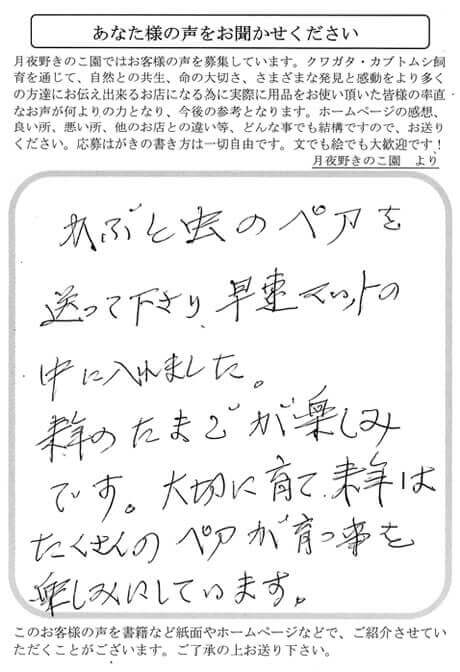 あなた様の声をお聞かせください
月夜野きのこ園ではお客様の声を募集しています。クワガタ・カブトムシ飼
育を通じて、自然との共生、命の大切さ、さまざまな発見と感動をより多く
の方達にお伝え出来るお店になる為に実際に用品をお使い頂いた皆様の率直
なお声が何よりの力となり、今後の参考となります。ホームページの感想、
良い所、悪い所、他のお店との違い等、どんな事でも結構ですので、お送り
ください。応募はがきの書き方は一切自由です。文でも絵でも大歓迎です!
月夜野きのこ園 より
かぶと虫のペアを
送って下さり、早速マットの
中に入れました。
来年のたまごが楽しみ
です。大切に育て、来年は
たくさんのペアが育つ事を
楽しみにしています。
このお客様の声を書籍など紙面やホームページなどで、ご紹介させてい
ただくことがございます。ご了承の上お送り下さい。